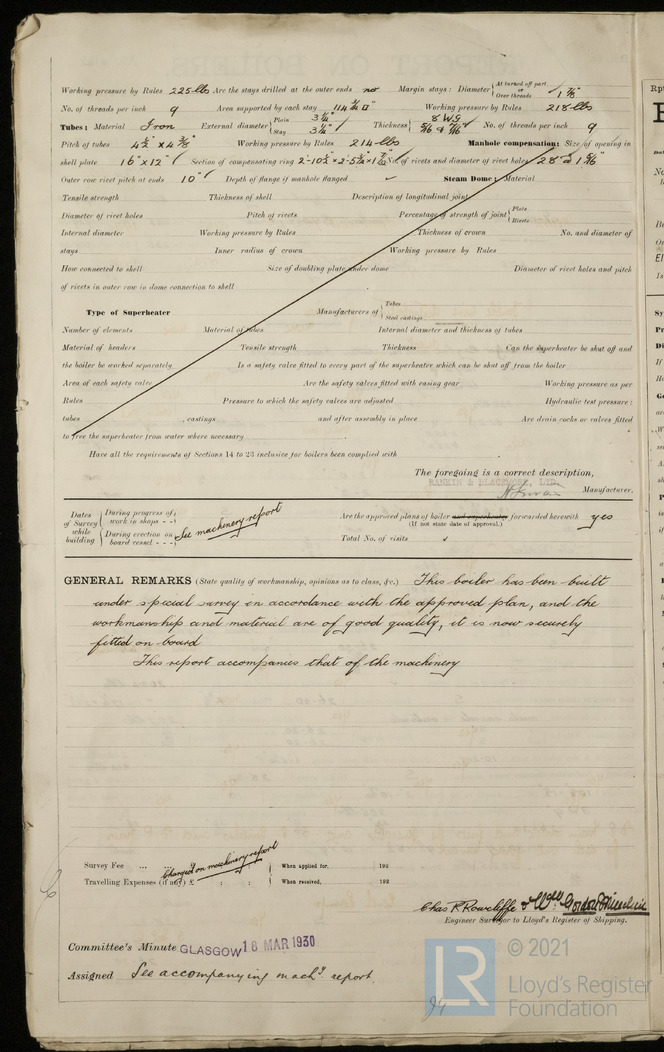 Working pressure by Rules 225 lbs Are the stays drilled at the outer ends no Margin stays: Diameter { At turned off part, or Over threads 1 7/8"
No. of threads per inch 9 Area supported by each stay 114 Working pressure by Rules 218 lbs
Tubes: Material Iron External diameter { Plain 3 1/4" Stay 3 1/4" Thickness { 8 WG 5/16 & 7/16 No. of threads per inch 9
Pitch of tubes 4 1/2" x 4 3/8" Working pressure by Rules 214 lbs Manhole compensation: Size of opening in
shell plate 16" x 12" Section of compensating ring No. of rivets and diameter of rivet holes 28 1 5/16"
Outer row rivet pitch at ends 10" Depth of flange if manhole flanged Steam Dome: Material
Tensile strength Thickness of shell Description of longitudinal joint
Diameter of rivet holes Pitch of rivets Percentage of strength of joint { Plate Rivets
Internal diameter Working pressure by Rules Thickness of crown No. and diameter of
stays Inner radius of crown Working pressure by Rules
How connected to shell Size of doubling plate under dome Diameter of rivet holes and pitch
of rivets in outer row in dome connection to shell
Type of Superheater Manufacturers of { Tubes Steel castings
Number of elements Material of tubes Internal diameter and thickness of tubes
Material of headers Tensile strength Thickness Can the superheater be shut off and
the boiler be worked separately Is a safety valve fitted to every part of the superheater which can be shut off from the boiler
Area of each safety valve Are the safety valves fitted with easing gear Working pressure as per
Rules Pressure to which the safety valves are adjusted Hydraulic test pressure:
tubes , castings and after assembly in place Are drain cocks or valves fitted
to free the superheater from water where necessary
Have all the requirements of Sections 14 to 23 inclusive for boilers been complied with
The foregoing is a correct description,
RANKIN & BLACKMORE, LTD.
Manufacturer.
Dates of Survey while building { During progress of work in shops - - During erection on board vessel - - - See machinery report
Are the approved plans of boiler and superheater forwarded herewith yes
(If not state date of approval.)
Total No. of visits
GENERAL REMARKS (State quality of workmanship, opinions as to class, &c.) This boiler has been built
under special survey in accordance with the approved plan, and the
workmanship and material are of good quality, it is now securely
fitted on board
This report accompanies that of the machinery
Survey Fee ... ... Charged on machinery report When applied for, 192
Travelling Expenses (if any) £ : : When received, 192
Chas R Rowcliffe & Wm Gordon
Engineer Surveyor to Lloyd's Register of Shipping.
Committee's Minute GLASGOW 18 MAR 1930
Assigned See accompanying machy. report.
© 2021
LR
Lloyd's Register
Foundation